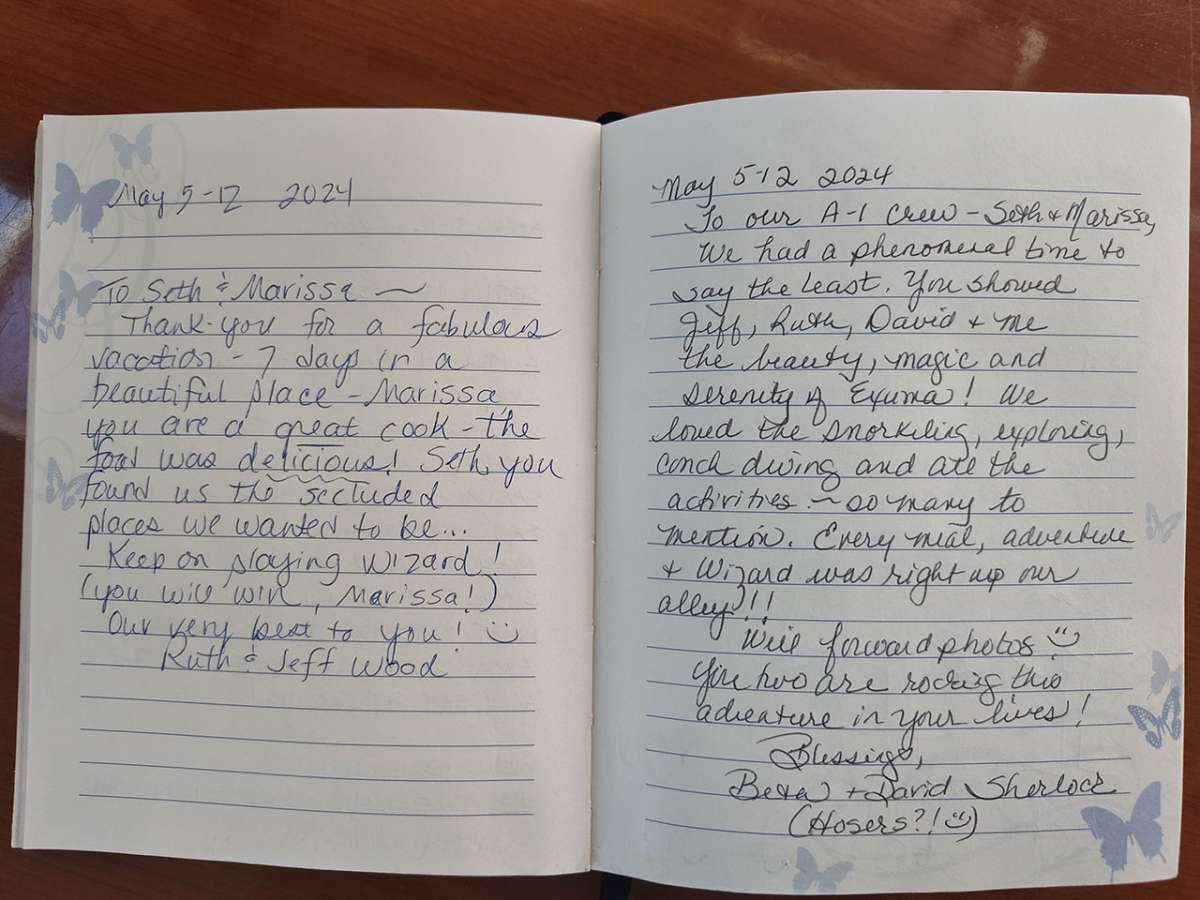 May 5-12 2024
To Seth & Marissa ~
Thank-you for a fabulous
vacation - 7 days in a
beautiful place - Marissa
you are a great cook - the
food was delicious! Seth, you
found us the secluded
places we wanted to be...
Keep on playing Wizard!
(you will win, Marissa!)
Our very best to you! ☺
Ruth & Jeff Wood
May 5-12 2024
To our A-1 crew - Seth & Marissa,
We had a phenomenal time to
say the least. You showed
Jeff, Ruth, David + me
the beauty, magic and
serenity of Exuma! We
loved the snorkeling, exploring,
conch diving and all the
activities ~ so many to
mention. Every meal, adventure
+ Wizard was right up our
alley!!!
Will forward photos ☺
You two are rocking this
adventure in your lives!
Blessings,
+ David Sherlock
(Hosers?! ☺)